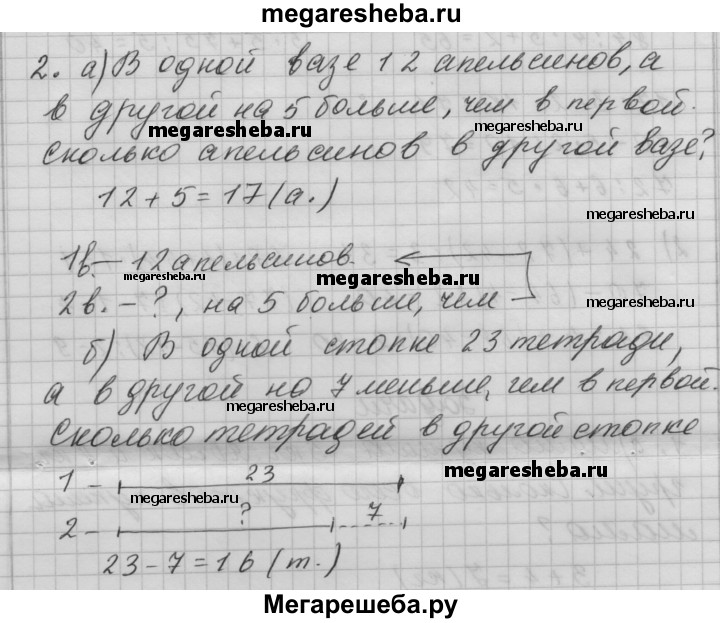 megaresheba.ru
2. а) В одной вазе 12 апельсинов, а
в другой на 5 больше, чем в первой.
megaresheba.ru megaresheba.ru
Сколько апельсинов в другой вазе?
12 + 5 = 17 (а.)
megaresheba.ru
1в. – 12 апельсинов.
megaresheba.ru megaresheba.ru
2в. – ?, на 5 больше, чем
megaresheba.ru
б) В одной стопке 23 тетради,
а в другой на 7 меньше, чем в первой.
megaresheba.ru
Сколько тетрадей в другой стопке
1 – 23
megaresheba.ru
megaresheba.ru
2 – ? 7
23 – 7 = 16 (т.)
Мегарешеба.ру